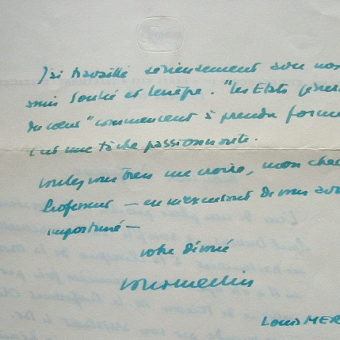 J'ai travaillé sérieusement avec nos
amis Soulié et Lenègre. "Les Etats généra
du cœur" commencent à prendre forme
C'est une tâche passionnante.
Voulez vous bien me croire, mon cher
Professeur — en m'excusant de vous avoir
importuné —
votre dévoué
Louis MER